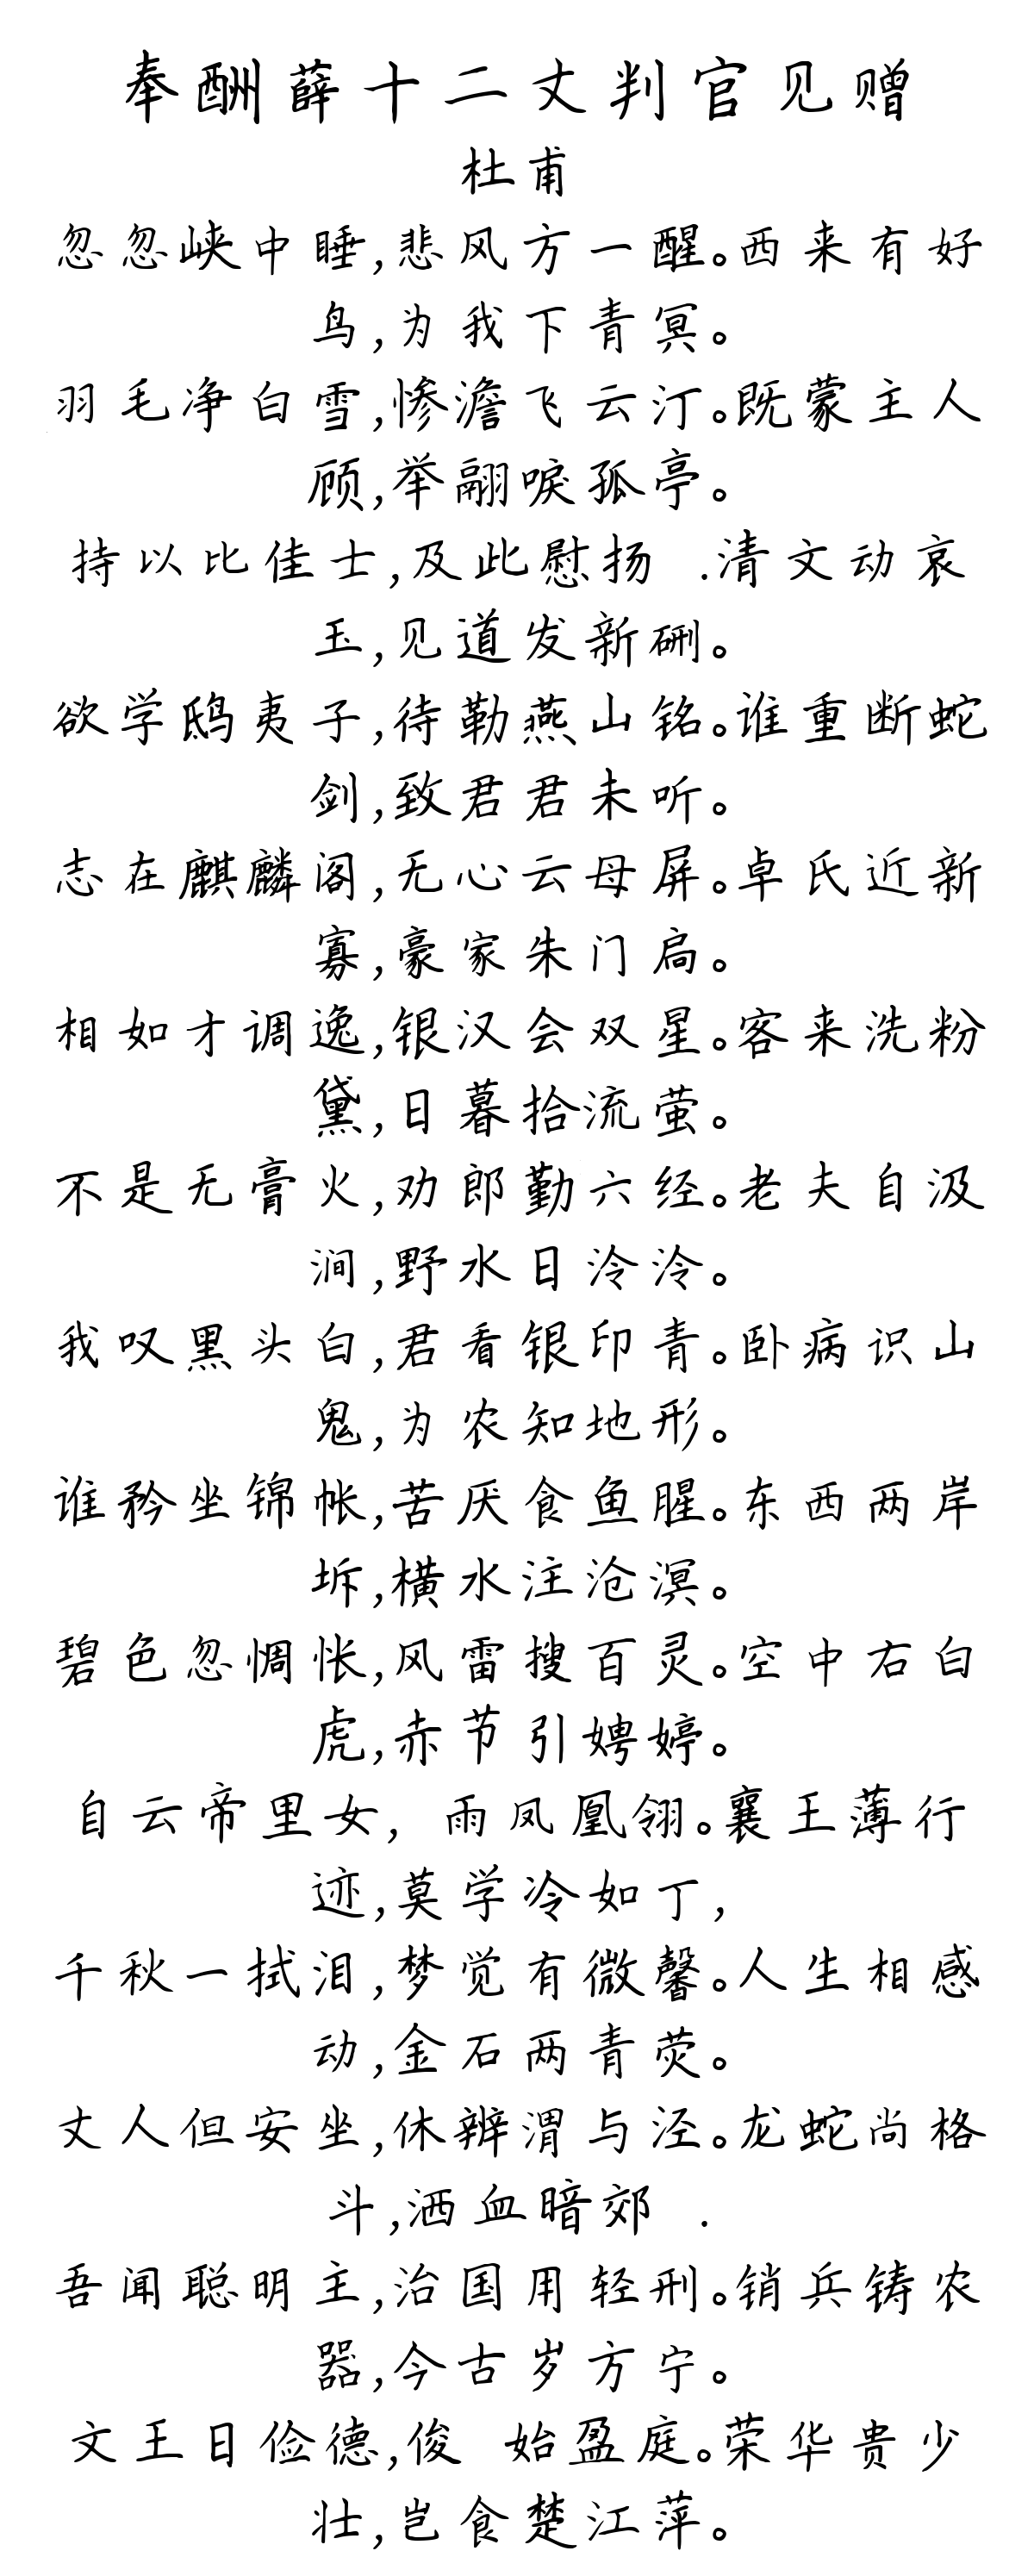 奉酬薛十二丈判官见赠
杜甫
忽忽峡中睡,悲风方一醒。西来有好
鸟,为我下青冥。
羽毛净白雪,惨澹飞云汀。既蒙主人
顾,举翮唳孤亭。
持以比佳士,及此慰扬 .清文动哀
玉,见道发新硎。
欲学鸱夷子,待勒燕山铭。谁重断蛇
剑,致君君未听。
志在麒麟阁,无心云母屏。卓氏近新
寡,豪家朱门扃。
相如才调逸,银汉会双星。客来洗粉
黛,日暮拾流萤。
不是无膏火,劝郎勤六经。老夫自汲
涧,野水日泠泠。
我叹黑头白,君看银印青。卧病识山
鬼,为农知地形。
谁矜坐锦帐,苦厌食鱼腥。东西两岸
坼,横水注沧溟。
碧色忽惆怅,风雷搜百灵。空中右白
虎,赤节引娉婷。
自云帝里女, 雨凤凰翎。襄王薄行
迹,莫学冷如丁,
千秋一拭泪,梦觉有微馨。人生相感
动,金石两青荧。
丈人但安坐,休辨渭与泾。龙蛇尚格
斗,洒血暗郊 .
吾闻聪明主,治国用轻刑。销兵铸农
器,今古岁方宁。
文王日俭德,俊 始盈庭。荣华贵少
壮,岂食楚江萍。